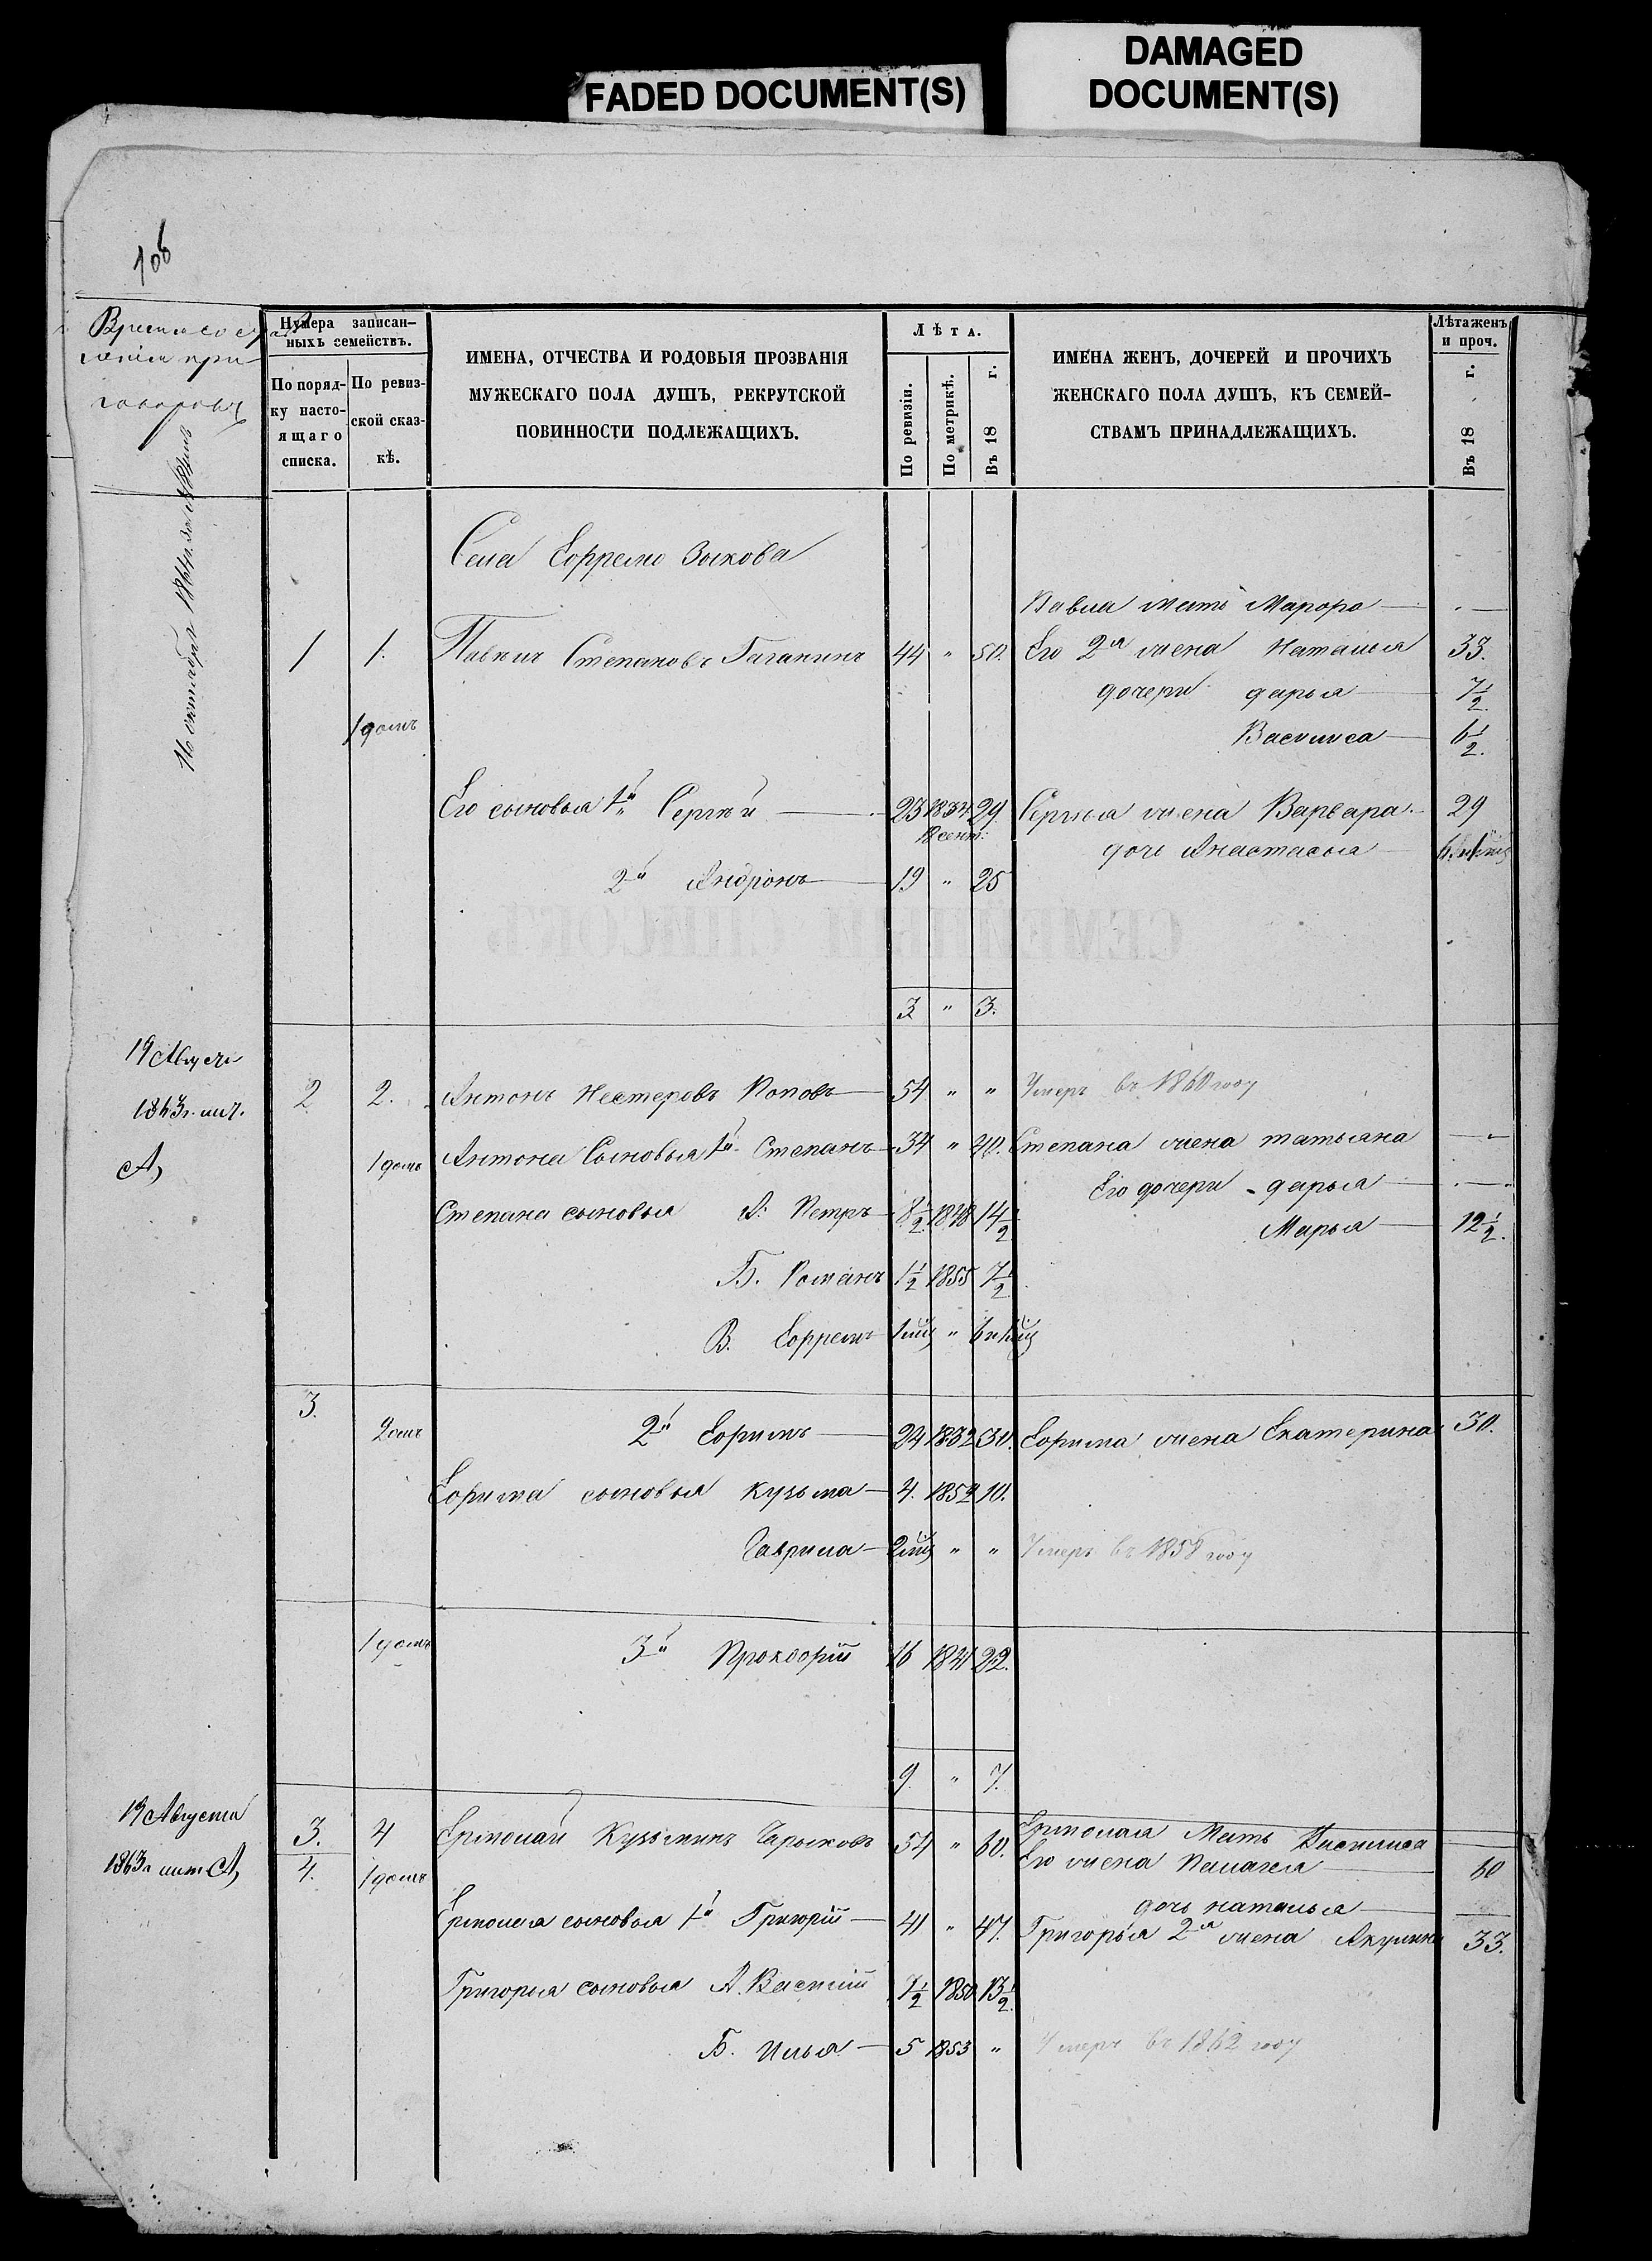 FADED DOCUMENT(S)
DAMAGED
DOCUMENT(S)
106
Время состав
ленія при
говоровъ
Нумера записан-
ныхъ семействъ.
По поряд-
ку насто-
ящаго
списка.
По ревиз-
ской сказ-
кѣ.
ИМЕНА, ОТЧЕСТВА И РОДОВЫЯ ПРОЗВАНІЯ
МУЖЕСКАГО ПОЛА ДУШЪ, РЕКРУТСКОЙ
ПОВИННОСТИ ПОДЛЕЖАЩИХЪ.
Лѣта.
По ревизіи.
По метрикѣ.
Въ 18 г.
ИМЕНА ЖЕНЪ, ДОЧЕРЕЙ И ПРОЧИХЪ
ЖЕНСКАГО ПОЛА ДУШЪ, КЪ СЕМЕЙ-
СТВАМЪ ПРИНАДЛЕЖАЩИХЪ.
Лѣта женъ
и проч.
Въ 18 г.
16 октября 1864 г.
Села Ефремо Зыкова
мать —
1 1. Степановъ 44 " 50. Его 2я жена Наталья 33.
дочери дарья — 7½
1 домъ Василиса — 6½.
Его сыновья 1й Сергѣй — 23 1834 29 Сергѣя жена Варвара — 29
сент:
дочь Анастасья —
2й Андронъ — 19 " 25
3 " 3.
19 Август
1863 г. лит.
А,
2 2. Антонъ Нестеровъ Поповъ — 54 " " Умеръ въ 1860 году
1 домъ Антона Сыновья 1й Степанъ — 34 " 40. Степана жена татьяна —
Его дочери дарья —
Степана сыновья А. Петръ — 8½ 1848 14½
Марья — 12½.
Б. Романъ 1½ 1855 7½
В. Ефремъ 1 мц "
3.
2 домъ 2й Ефимъ — 24 1832 30. Ефима жена Екатерина 30.
Ефима сыновья кузьма — 4. 1852 10.
Гаврила — 2 мц " " Умеръ въ 1858 году
1 домъ 3й Прокофій 16 1841 22.
9. " 7.
19 Августа
1863 г лит А,
3. 4 Ермолай Кузьминъ 54 " 60. Ермолая Мать Василиса —
4. 1 домъ Его жена Пелагея — 60
дочь наталья —
Ермолая сыновья 1й Григорій — 41 " 47. Григорья 2я жена Акулина 33.
Григорья сыновья А. Василій 7½ 1850 13½.
Б. Илья — 5 1853 " Умеръ въ 1862 году